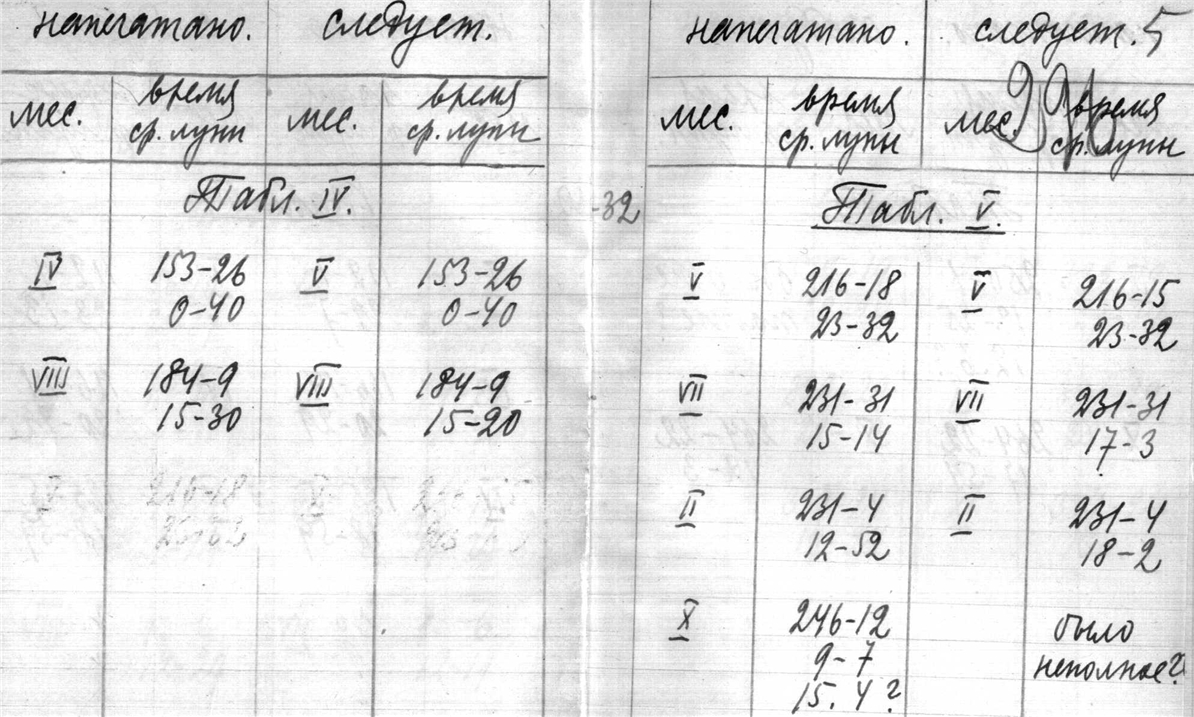 напечатано. следует.
мес. время ср. луны мес. время ср. луны
Табл. IV.
IV 153-26 V 153-26
0-40 0-40
VIII 184-9 VIII 184-9
15-30 15-20
-32
напечатано. следует. 5
мес. время ср. луны мес. время ср. луны
Табл. V.
V 216-18 V 216-15
23-32 23-32
VII 231-31 VII 231-31
15-14 17-3
II 231-4 II 231-4
12-52 18-2
X 246-12 было
9-7 неполное?
15.4?